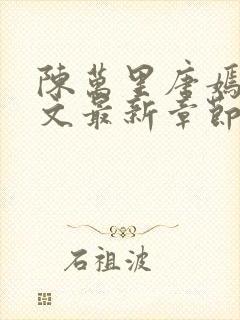 陳萬里唐嫣
文最新章節
石祖波